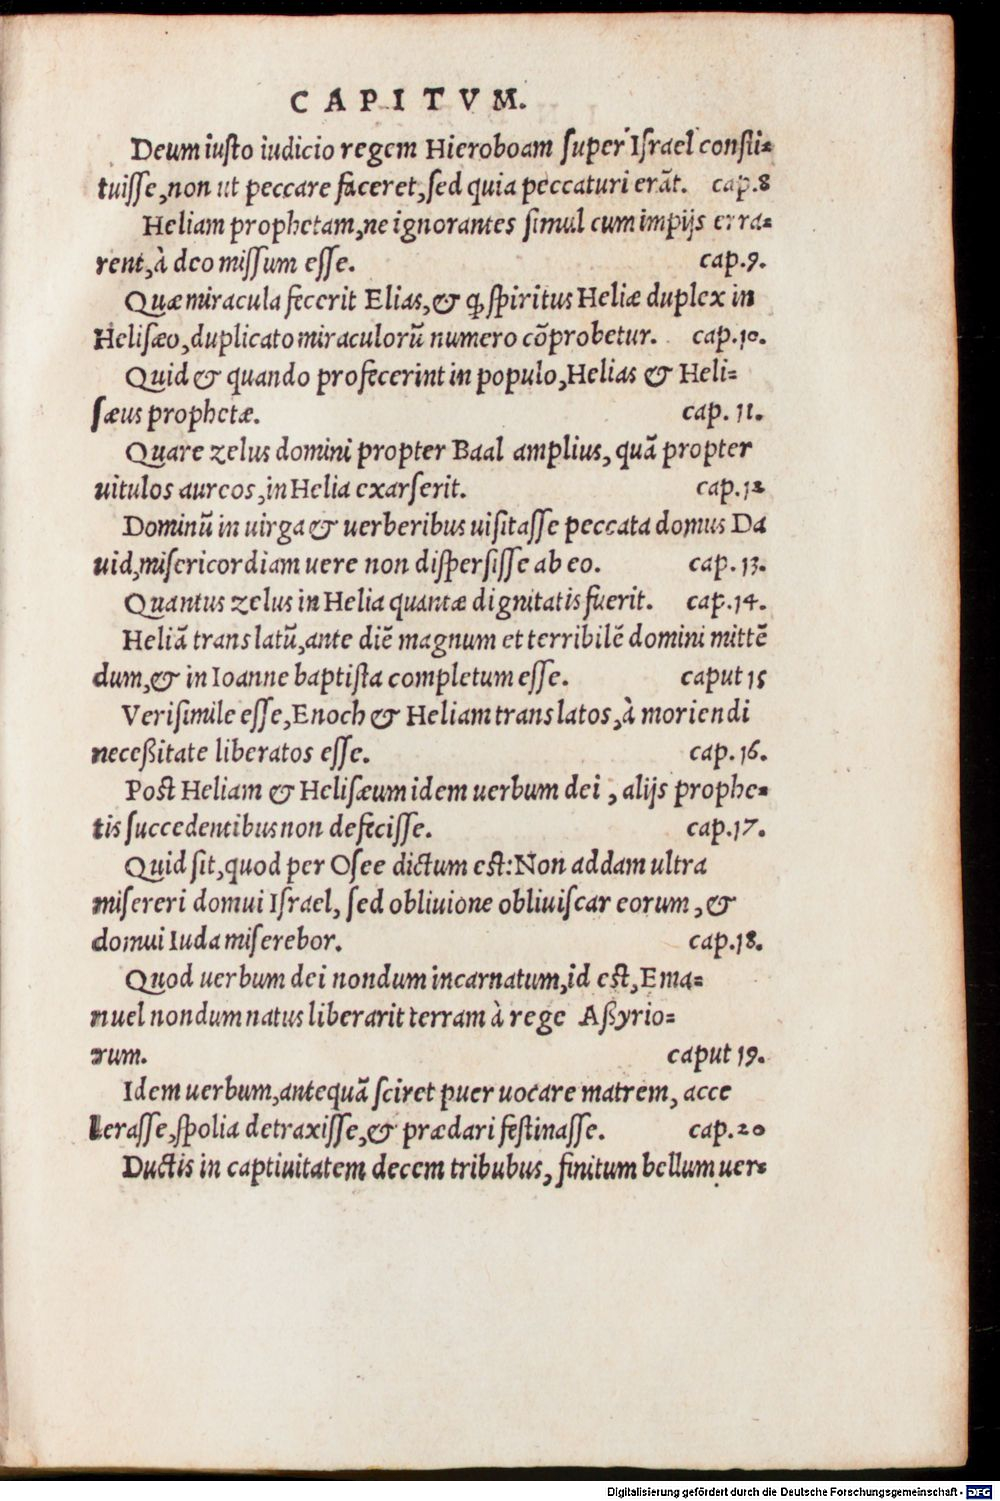 CAPITVM.
Deum iusto iudicio regem Hieroboam super Israel consti-
tuisse, non ut peccare faceret, sed quia peccaturi erãt. cap.8
Heliam prophetam, ne ignorantes simul cum impijs erra-
rent, à deo missum esse. cap.9.
Quæ miracula fecerit Elias, & ꝙ spiritus Heliæ duplex in
Helisæo, duplicato miraculorũ numero cõprobetur. cap.10.
Quid & quando profecerint in populo, Helias & Heli-
sæus prophetæ. cap. 11.
Quare zelus domini propter Baal amplius, quã propter
uitulos aureos, in Helia exarserit. cap.12
Dominũ in uirga & uerberibus uisitasse peccata domus Da
uid, misericordiam uere non dispersisse ab eo. cap. 13.
Quantus zelus in Helia quantæ dignitatis fuerit. cap.14.
Heliã translatũ, ante diẽ magnum et terribilẽ domini mittẽ
dum, & in Ioanne baptista completum esse. caput 15
Verisimile esse, Enoch & Heliam translatos, à moriendi
neceßitate liberatos esse. cap.16.
Post Heliam & Helisæum idem uerbum dei, alijs prophe-
tis succedentibus non defecisse. cap.17.
Quid sit, quod per Osee dictum est: Non addam ultra
misereri domui Israel, sed obliuione obliuiscar eorum, &
domui Iuda miserebor. cap.18.
Quod uerbum dei nondum incarnatum, id est, Ema-
nuel nondum natus liberarit terram à rege Aßyrio-
rum. caput 19.
Idem uerbum, antequã sciret puer uocare matrem, acce
lerasse, spolia detraxisse, & prædari festinasse. cap.20
Ductis in captiuitatem decem tribubus, finitum bellum uer-
Digitalisierung gefördert durch die Deutsche Forschungsgemeinschaft - DFG